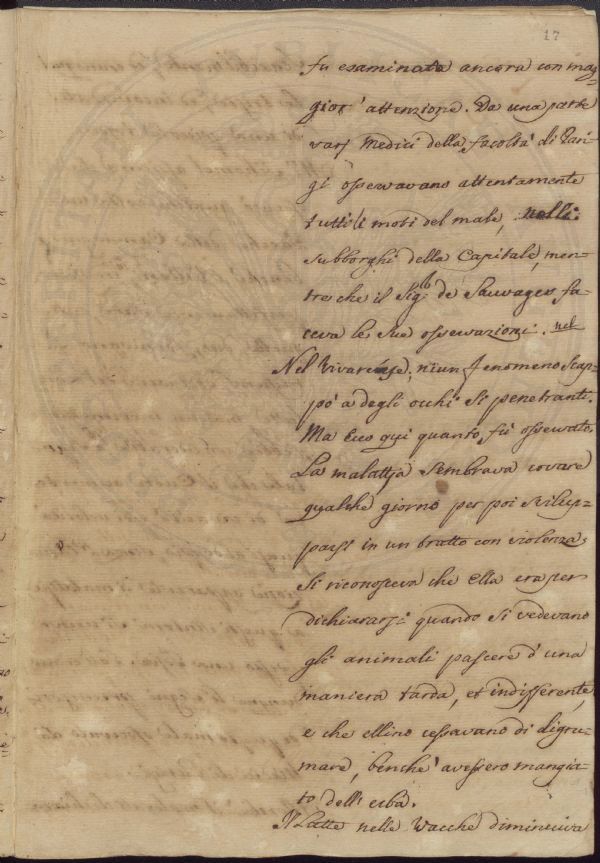 17
fu esaminata ancora con mag=
gior' attenzione. Da una parte
varj Medici della facoltà di Pari-
gi osservavano attentamente
tutti li moti del male, nelli
subborghi della Capitale, men-
tre che il Sig.r de Sauvages fa-
ceva le sue osservazioni. nel
Nel Vivarese, niun fenomeno scap=
pò a degli occhi si penetranti.
Ma Ecco qui quanto fù osservato.
La malattja sembrava covare
qualche giorno per poi svilup=
parsi in un tratto con violenza.
Si riconosceva che Ella era per
dichiararsi quando si vedevano
gli animali pascere d'una
maniera tarda, et indifferente,
e che ellino cessavano di digru-
mare, benche' avessero mangia-
to dell' erba.
Il Latte nelle Vacche diminuiva